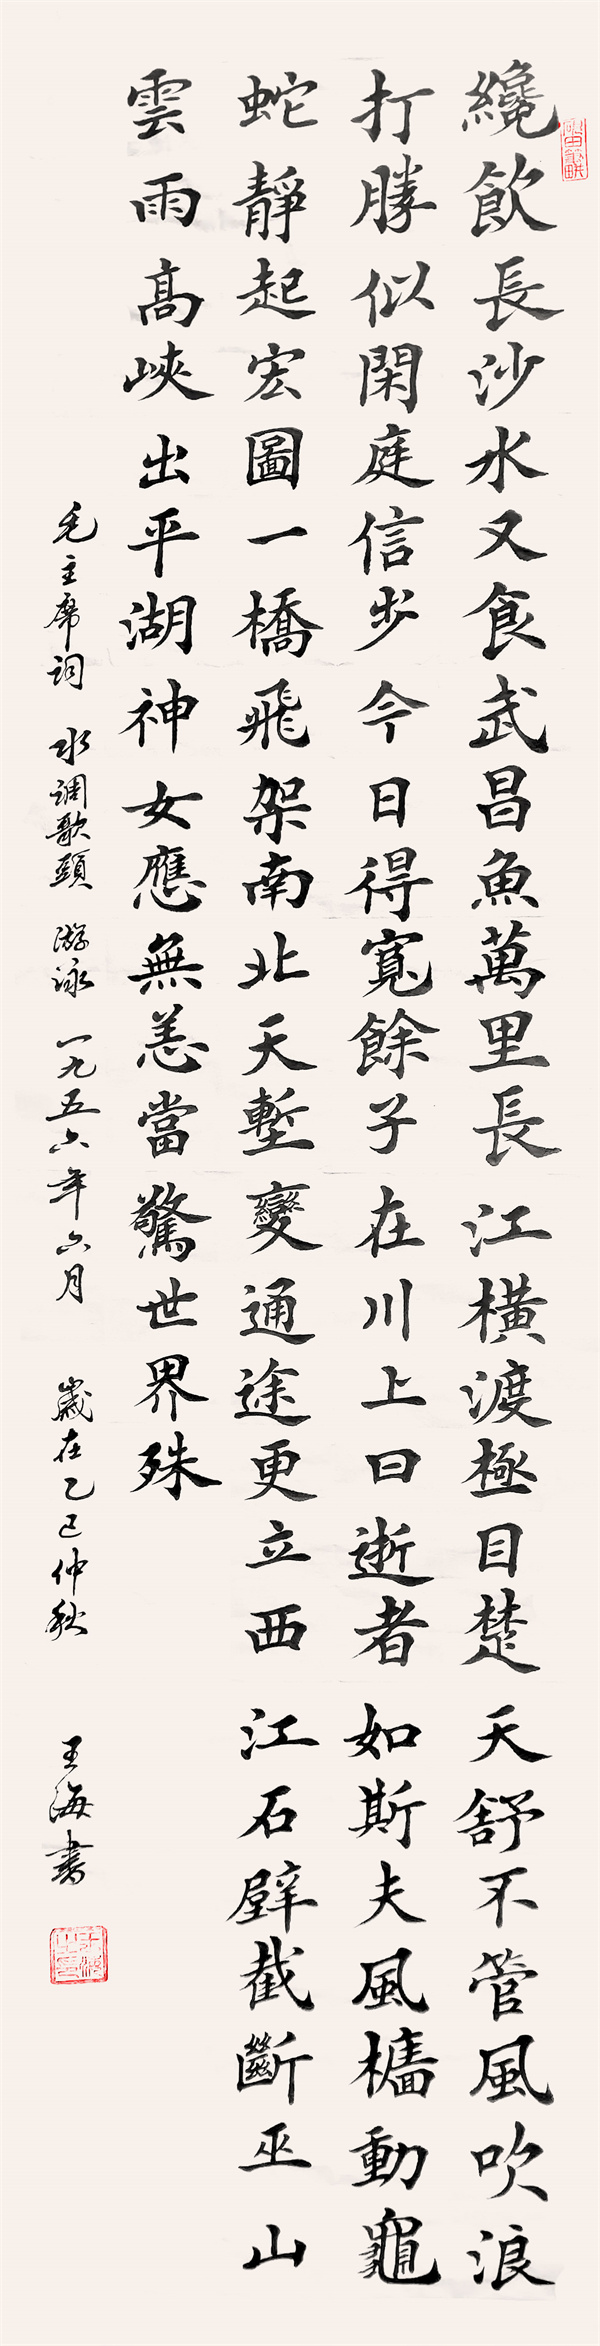 纔飲長沙水又食武昌魚萬里長江橫渡極目楚天舒不管風吹浪
打勝似閑庭信步今日得寬餘子在川上曰逝者如斯夫風檣動龜
蛇靜起宏圖一橋飛架南北天塹變通途更立西江石壁截斷巫山
雲雨高峽出平湖神女應無恙當驚世界殊
毛主席詞 水调歌頭 游泳 一九五六年六月 歲在乙巳仲秋 王海書